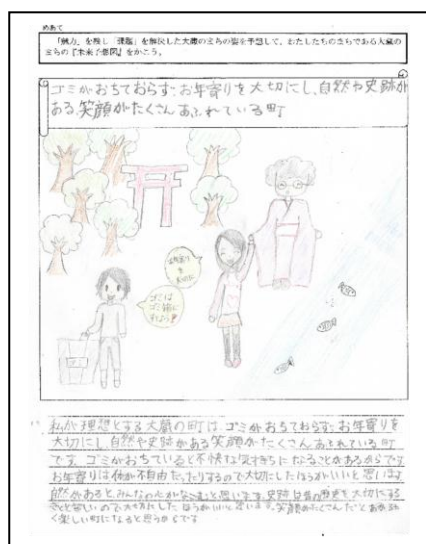 めあて
「魅力」を残し「課題」を解決した大蔵のまちの姿を予想して、わたしたちのまちである大蔵の
まちの『未来予想図』をかこう。
ゴミがおちておらず、お年寄りを大切にし、自然や史跡が
ある、笑顔がたくさんあふれている町
お年寄りを
大切に
ゴミは
ゴミ箱に
すてよう
私が理想とする大蔵の町は、ゴミがおちておらず、お年寄りを
大切にし、自然や史跡がある笑顔がたくさんあふれている町
です。ゴミがおちていると不快な気持ちになることがあるからです。
お年寄りは体が不自由だったりするので大切にしたほうがいいと思います。
自然があると、みんなの心がなごむと思います。史跡は昔の歴史を大切にする
ので大切にしたほうがいいと思います。笑顔がたくさんだと
楽しい町になると思うからです